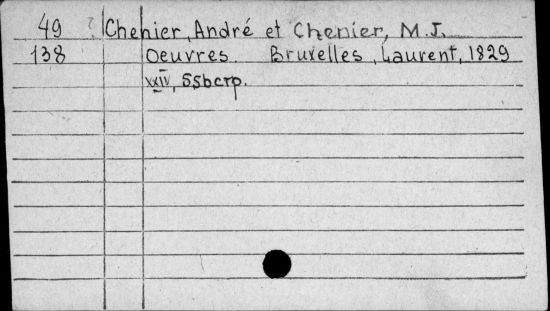 49 ? Chenier, André et Chenier, M. J.
138 Oeuvres. Bruxelles, Laurent, 1829
XXIV, 556 стр.